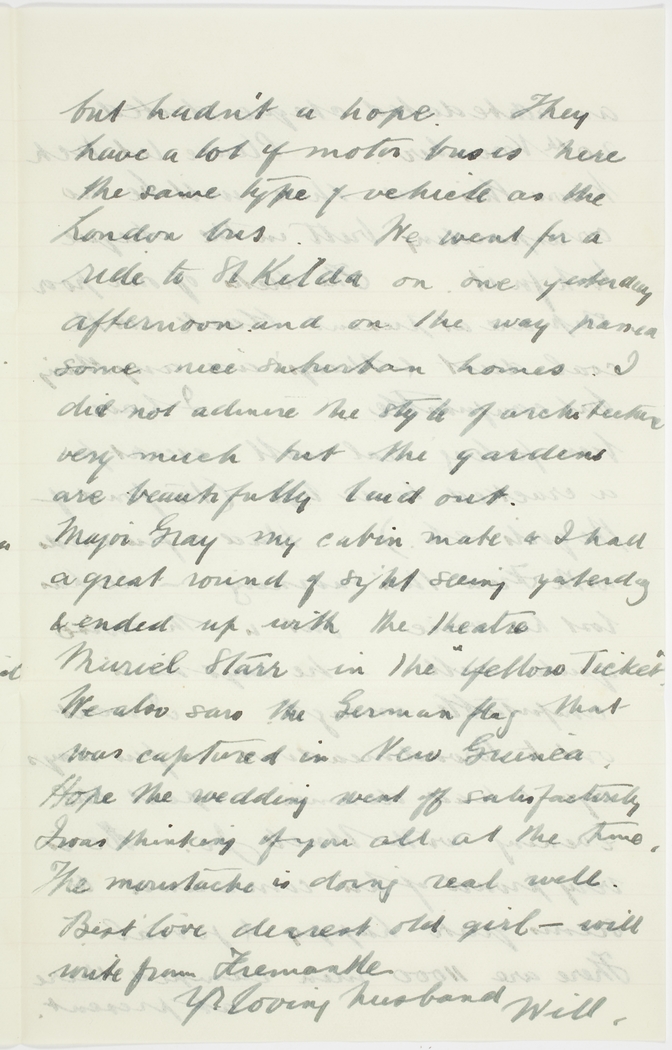 but hadn't a hope. They
have a lot of motor buses here
the same type of vehicle as the
London bus. We went for a
ride to St Kilda on one yesterday
afternoon and on the way passed
some nice suburban homes. I
did not admire the style of architecture
very much but the gardens
are beautifully laid out.
Major Gray my cabin mate & I had
a great round of sight seeing yesterday
& ended up with the theatre
Muriel Starr in the "Yellow Ticket"
We also saw the German flag that
was captured in New Guinea.
Hope the wedding went off satisfactorily
I was thinking of you all at the time.
The moustache is doing real well.
Best love dearest old girl — will
write from Fremantle
Yr loving husband Will.